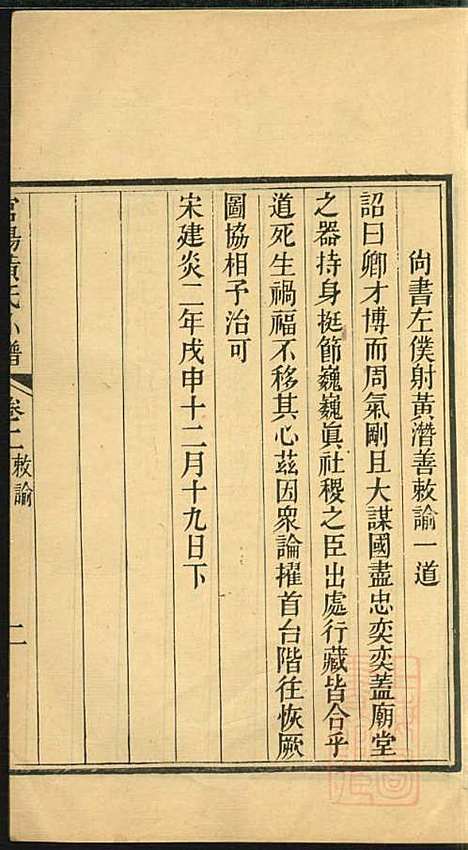 尙書左僕射黃潛善敕諭一道
詔曰卿才博而周氣剛且大謀國盡忠奕奕蓋廟堂
之器持身挺節巍巍眞社稷之臣出處行藏皆合乎
道死生禍福不移其心茲因眾論擢首台階往恢厥
圖協相予治可
宋建炎二年戊申十二月十九日下
黃氏 譜
卷二 敕諭
二